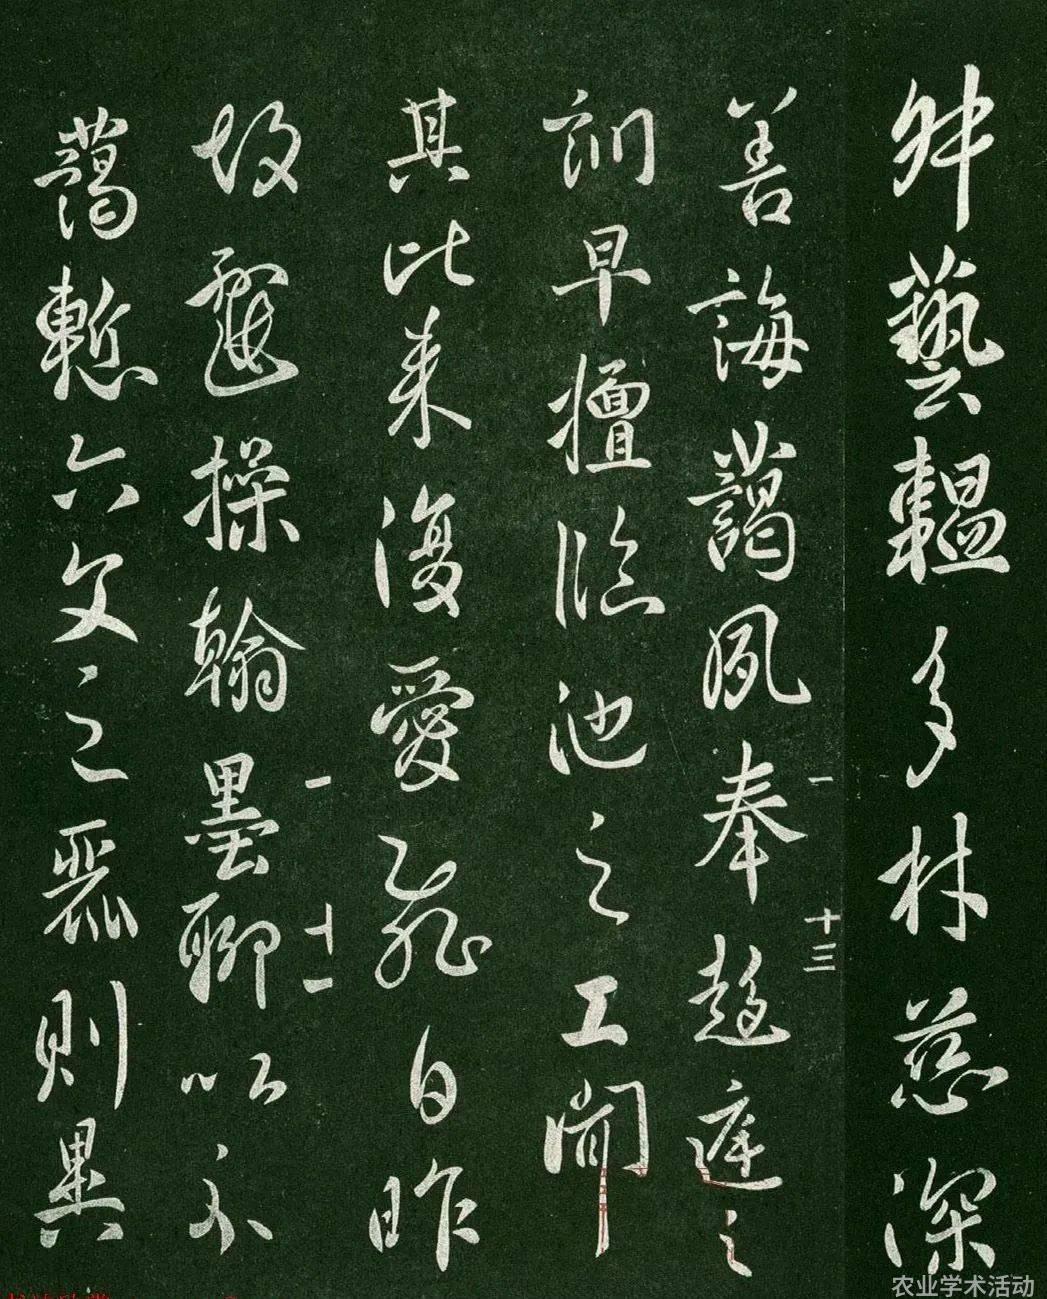 叔藝韞多材慈深
善誨藹夙奉趍庭之
一 十三
訓早擅臨池之工聞
其比來復愛飛白昨
一 十二
故遽操翰墨聊以示
藹慙六文之麗則異
农业学术活动